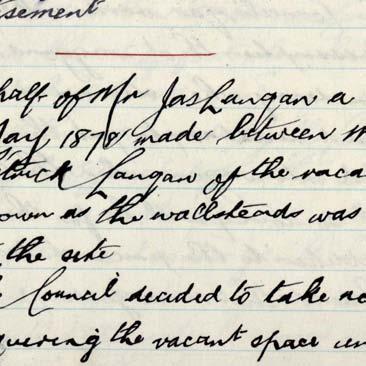 isement
half of Mr Jas Langan a
May 1878 made between M
trick Langan of the vaca
own as the wallsteads was
the site
Council decided to take no
quering the vacant space un